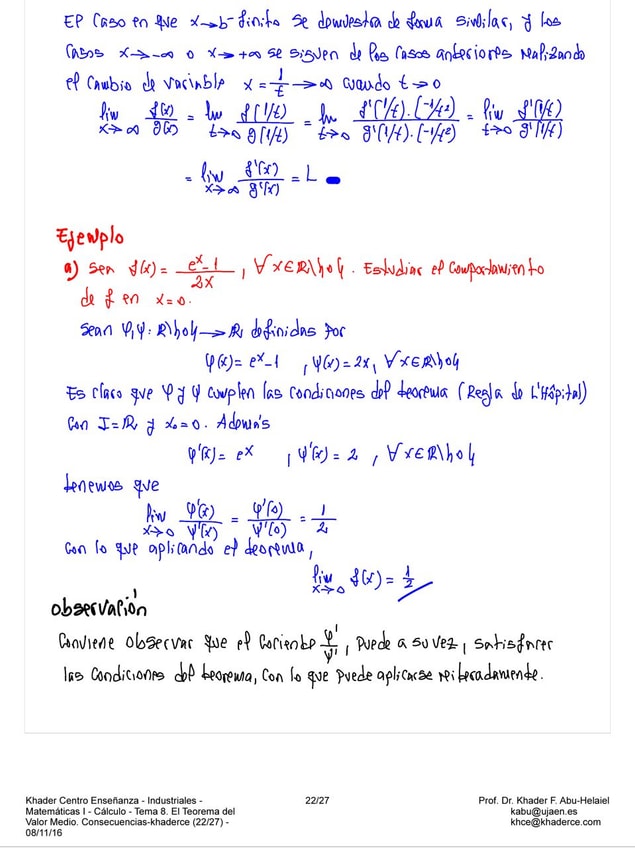 El caso en que x→b⁻ finito se demuestra de forma similar, y los
casos x→-∞ o x→+∞ se siguen de los casos anteriores realizando
el cambio de variable x = 1/t → ∞ cuando t→0
lim x→∞ f(x)/g(x) = lim t→0 f(1/t)/g(1/t) = lim t→0 f'(1/t).(-1/t²)/g'(1/t).(-1/t²) = lim t→0 f'(1/t)/g'(1/t)
= lim x→∞ f'(x)/g'(x) = L
Ejemplo
a) Sea f(x) = (eˣ-1)/2x , ∀x∈ℝ\{0}. Estudiar el comportamiento
de f en x=0.
Sean φ,ψ: ℝ\{0}→ℝ definidas por
φ(x)= eˣ-1 , ψ(x)=2x, ∀x∈ℝ\{0}
Es claro que φ y ψ cumplen las condiciones del teorema (Regla de L'Hôpital)
con I=ℝ y x₀=0. Además
φ'(x)= eˣ , ψ'(x)=2 , ∀x∈ℝ\{0}
tenemos que
lim x→0 φ'(x)/ψ'(x) = φ'(0)/ψ'(0) = 1/2
con lo que aplicando el teorema,
lim x→0 f(x) = 1/2
Observación
Conviene observar que el cociente φ'/ψ', puede a su vez, satisfacer
las condiciones del teorema, con lo que puede aplicarse reiteradamente.
Khader Centro Enseñanza - Industriales -
Matemáticas I - Cálculo - Tema 8. El Teorema del
Valor Medio. Consecuencias-khaderce (22/27) -
08/11/16
22/27
Prof. Dr. Khader F. Abu-Helaiel
kabu@ujaen.es
khce@khaderce.com